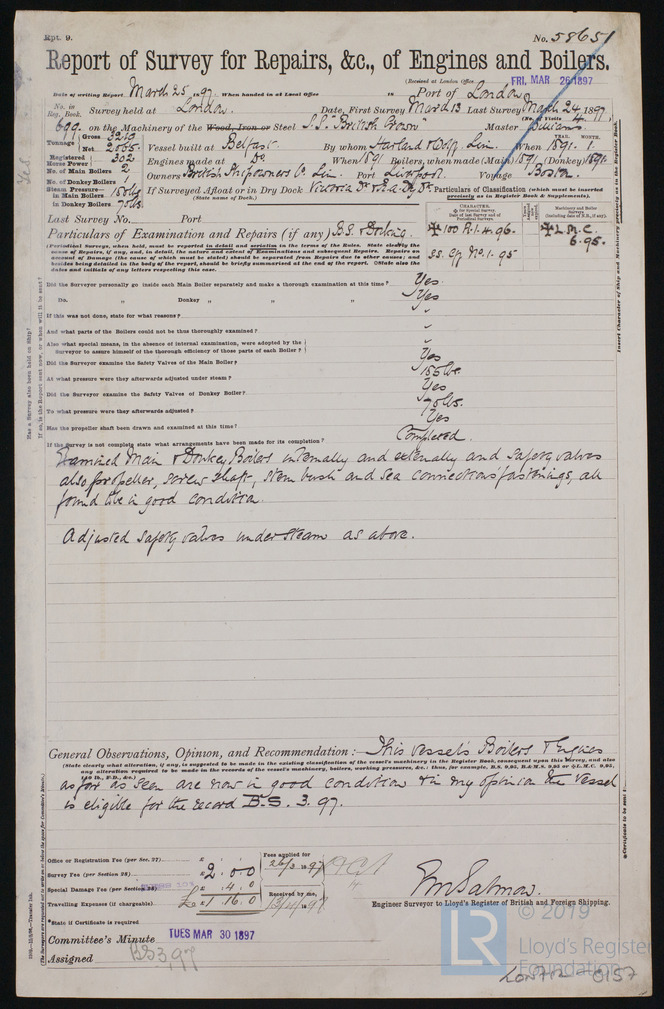 Rpt. 9.
No. 58651
Report of Survey for Repairs, &c., of Engines and Boilers.
(Received at London Office FRI. MAR 26 1897
Date of writing Report March 25 1897. When handed in at Local Office in Port of London
No. in Reg. Book. Survey held at London. Date, First Survey March 13 Last Survey March 24 1897.
(No. of Visits 4.)
699. on the Machinery of the Wood, Iron or Steel S.S. "British Crown" Master
Tonnage Gross Net 2065. Vessel built at Belfast. By whom Harland & Wolff Lim. When 1891. 1.
YEAR. MONTH.
Registered Horse Power 302. Engines made at Do When 1891 Boilers, when made (Main) 1891 (Donkey) 1891.
No. of Main Boilers 2 Owners British Shipowners Co. Lim. Port Liverpool. Voyage Boston.
No. of Donkey Boilers 1
Steam Pressure in Main Boilers If Surveyed Afloat or in Dry Dock Victoria Dk & R.A. Dry Dk.
(State name of Dock.)
in Donkey Boilers 75 lb.
Particulars of Classification (which must be inserted precisely as in Register Book & Supplements).
Last Survey No. Port
CHARACTER.
Machinery and Boiler Surveys
(including date of N.B., if any).
Particulars of Examination and Repairs (if any) B.S. & Docking.
100 A.1. 4.96.
SS. No. 1. 95
L.M.C. 6.95.
(Periodical Surveys, when held, must be reported in detail and seriatim in the terms of the Rules. State clearly the
cause of Repairs, if any, and, in detail, the nature and extent of Examinations and subsequent Repairs. Repairs on
account of Damage (the cause of which must be stated) should be separated from Repairs due to other causes; and
besides being detailed in the body of the report, should be briefly summarised at the end of the report. State also the
dates and initials of any letters respecting this case.
Did the Surveyor personally go inside each Main Boiler separately and make a thorough examination at this time? Yes.
Do. " Donkey " " " Yes
If this was not done, state for what reasons? "
And what parts of the Boilers could not be thus thoroughly examined? "
Also what special means, in the absence of internal examination, were adopted by the
Surveyor to assure himself of the thorough efficiency of those parts of each Boiler? "
Did the Surveyor examine the Safety Valves of the Main Boiler? Yes
At what pressure were they afterwards adjusted under steam? 155 lbs.
Did the Surveyor examine the Safety Valves of Donkey Boiler? Yes
To what pressure were they afterwards adjusted? 75 lbs.
Has the propeller shaft been drawn and examined at this time? Yes
If the Survey is not complete state what arrangements have been made for its completion? Completed.
Examined Main & Donkey Boilers internally and externally and safety valves
also propeller, screw shaft, stern bush and sea connections fastenings, all
found in good condition.
Adjusted safety valves under steam as above.
General Observations, Opinion, and Recommendation:— This vessel's Boilers & Engines
(State clearly what alteration, if any, is suggested to be made in the existing classification of the vessel's machinery in the Register Book, consequent upon this Survey, and also
any alteration required to be made in the records of the vessel's machinery, boilers, working pressures, &c.; thus, for example, B.S. 9,95, B.&M.S. 9,95 or L.M.C. 9,95,
140 lb., F.D., &c.)
as far as seen are now in good condition & in my opinion the vessel
is eligible for the record B.S. 3.97.
Office or Registration Fee (per Sec. 27)
Survey Fee (per Section 28) £ 2. 0. 0
Special Damage Fee (per Section 28) £ . 4. 0
Travelling Expenses (if chargeable). £ 1. 16. 0
Fees applied for
26/3 1897
Received by me,
1897
Engineer Surveyor to Lloyd's Register of British and Foreign Shipping.
*State if Certificate is required
Committee's Minute TUES MAR 30 1897
Assigned BS3,97
© 2019
LR
Lloyd's Register
Foundation
LON712-0157